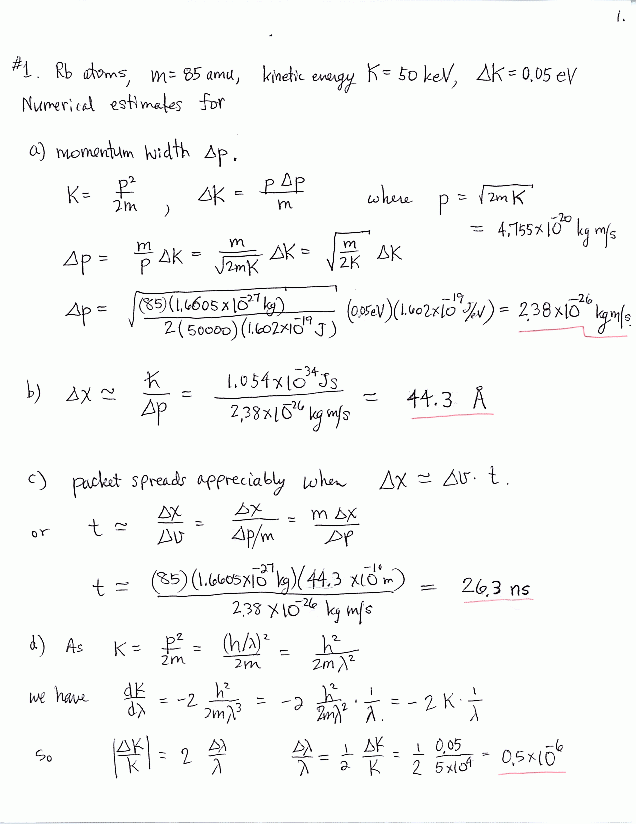 1.
#1. Rb atoms, m = 85 amu, kinetic energy K = 50 keV, ΔK = 0.05 eV
Numerical estimates for
a) momentum width Δp.
K = p²/2m , ΔK = pΔp/m where p = √(2mK)
= 4.755×10⁻²⁰ kg m/s
Δp = m/p ΔK = m/√(2mK) ΔK = √(m/2K) ΔK
Δp = √((85)(1.6605×10⁻²⁷ kg)/2(50000)(1.602×10⁻¹⁹ J)) (0.05eV)(1.602×10⁻¹⁹ J/eV) = 2.38×10⁻²⁶ kg m/s
b) Δx ≃ ħ/Δp = 1.054×10⁻³⁴ Js/2.38×10⁻²⁶ kg m/s = 44.3 Å
c) packet spreads appreciably when Δx ≃ Δv · t.
or t ≃ Δx/Δv = Δx/Δp/m = mΔx/Δp
t = (85)(1.6605×10⁻²⁷ kg)(44.3 ×10⁻¹⁰ m)/2.38 ×10⁻²⁶ kg m/s = 26.3 ns
d) As K = p²/2m = (h/λ)²/2m = h²/2mλ²
we have dK/dλ = -2 h²/2mλ³ = -2 h²/2mλ² · 1/λ. = -2 K · 1/λ
So |ΔK/K| = 2 Δλ/λ Δλ/λ = 1/2 ΔK/K = 1/2 0.05/5×10⁴ = 0.5×10⁻⁶